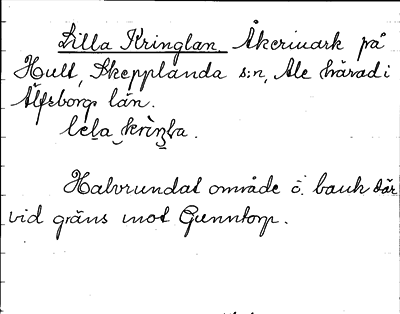 Lilla Kringlan. Åkermark på
Hult, Skepplanda s:n, Ale härad i
Älfsborgs län.
lela krìŋla.
Halvrundat område o. bank där
vid gräns mot Gunntorp.